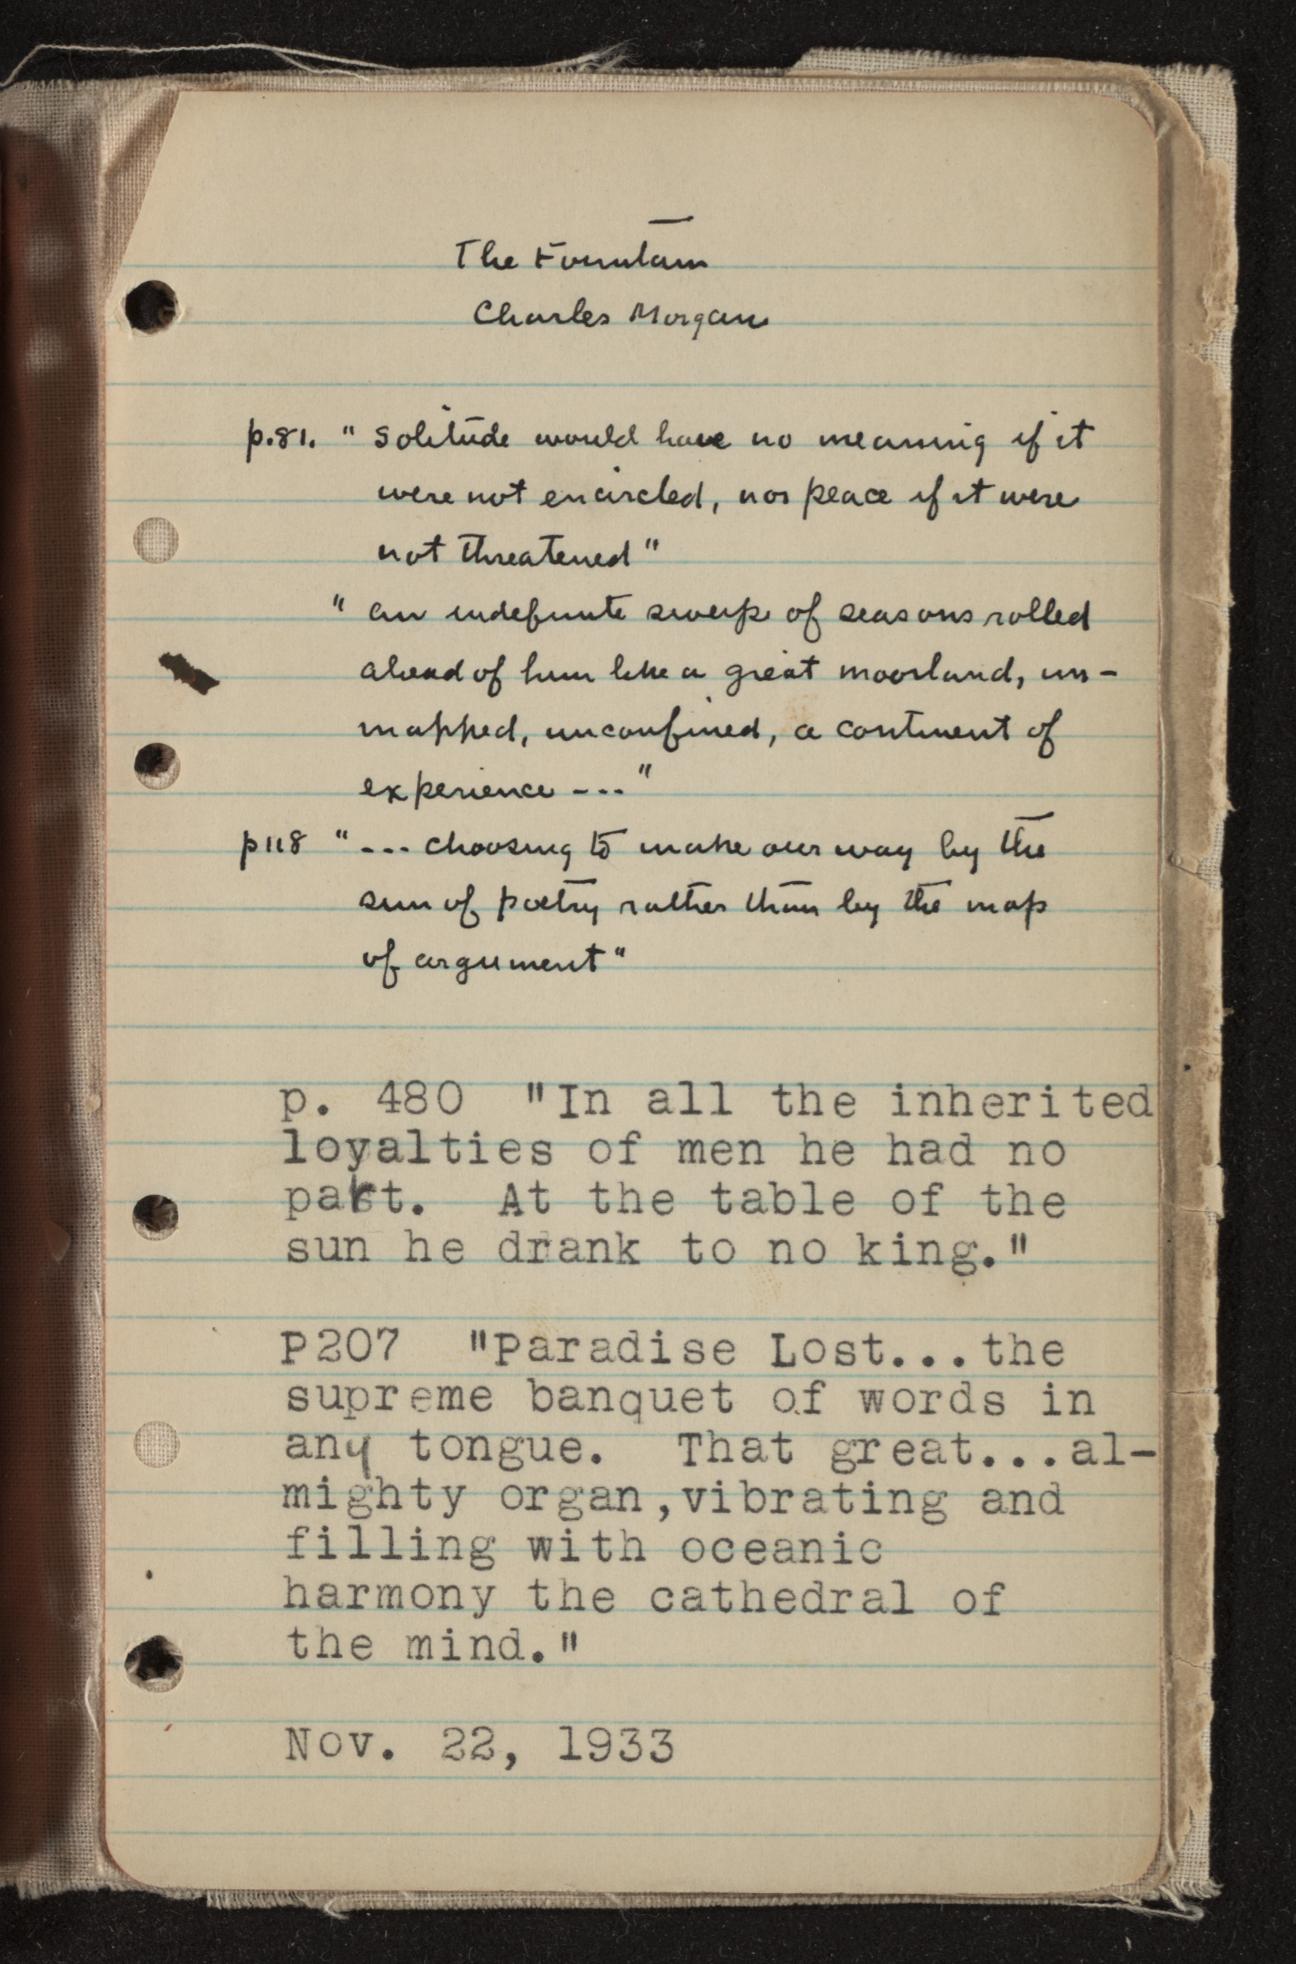 The Fountain
Charles Morgan
p.81. "Solitude would have no meaning if it
were not encircled, nor peace if it were
not threatened"
"an indefinite sweep of seasons rolled
ahead of him like a great moorland, un-
mapped, unconfined, a continent of
experience ---"
p118 "--- choosing to make our way by the
sun of poetry rather than by the map
of argument"
p. 480 "In all the inherited
loyalties of men he had no
part. At the table of the
sun he drank to no king."
P207 "Paradise Lost...the
supreme banquet of words in
any tongue. That great...al-
mighty organ,vibrating and
filling with oceanic
harmony the cathedral of
the mind."
Nov. 22, 1933